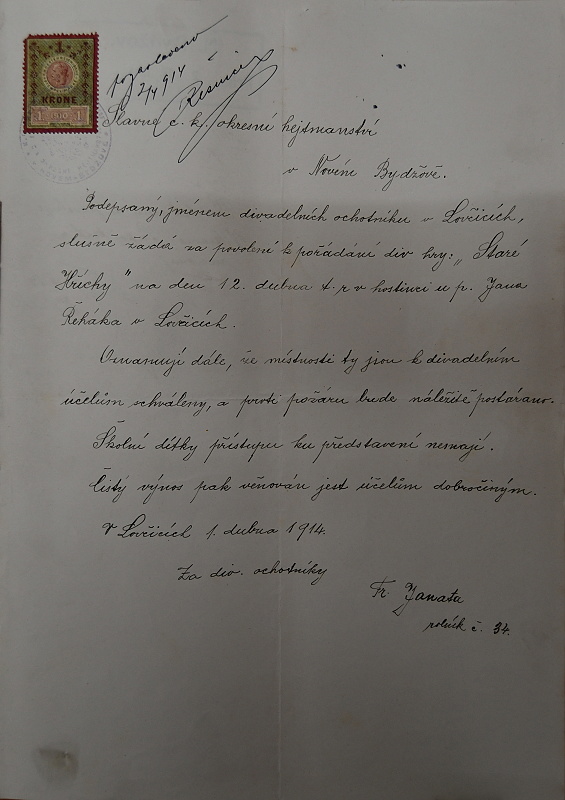 1
KRONE
1 1910 1
7/4 914
Slavné c. k. okresní hejtmanství
v Novém Bydžově.
Podepsaný, jménem divadelních ochotníku v Lovčicích,
slušně žádá za povolení k pořádání div hry: „Staré
Hříchy" na den 12. dubna t. r v hostinci u p. Jana
Řeháka v Lovčicích.
Oznamuji dále, že místnosti ty jsou k divadelním
účelům schváleny, a proti požáru bude náležitě postaráno.
Školní dítky přístupu ku představení nemají.
Čistý výnos pak věnován jest účelům dobročiným.
V Lovčicích 1. dubna 1914.
Za div. ochotníky
Fr. Janata
rolník č. 34.